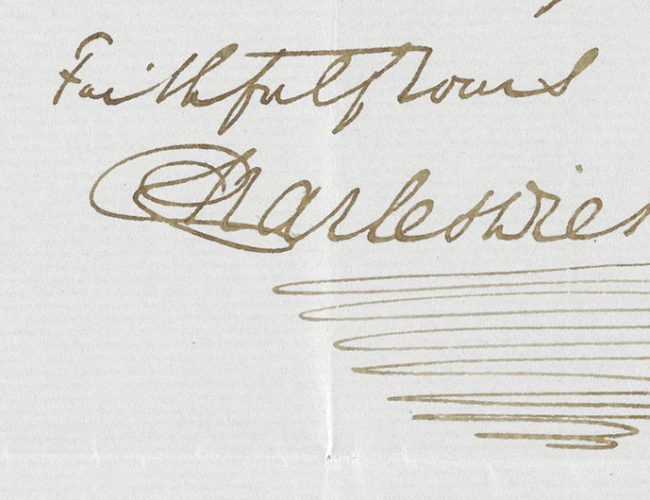 Faithfully Yours
Charles